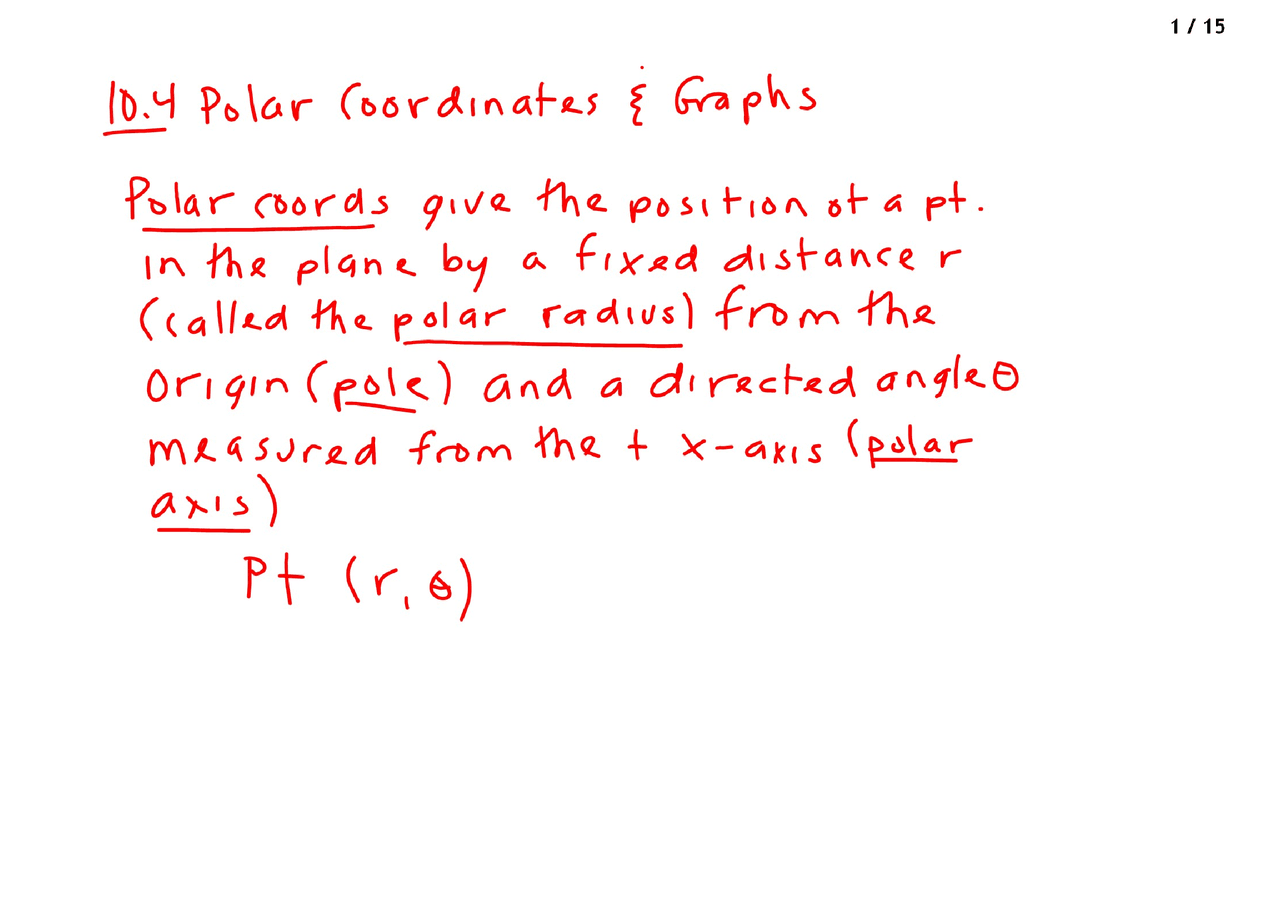 1 / 15
10.4 Polar Coordinates & Graphs
Polar coords give the position of a pt.
in the plane by a fixed distance r
(called the polar radius) from the
origin (pole) and a directed angle θ
measured from the + x-axis (polar
axis)
Pt (r, θ)